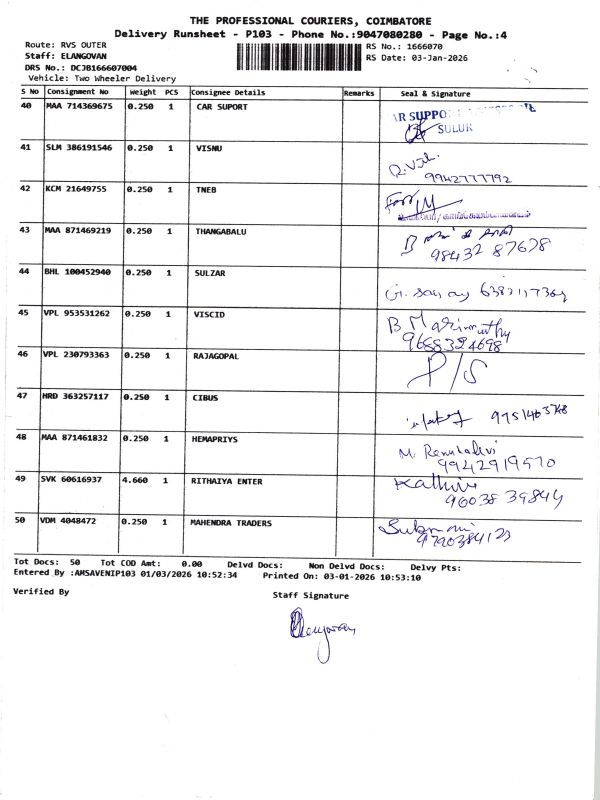 THE PROFESSIONAL COURIERS, COIMBATORE
Delivery Runsheet - P103 - Phone No.:9047080280 - Page No.:4
Route: RVS OUTER
RS No.: 1666070
Staff: ELANGOVAN
RS Date: 03-Jan-2026
DRS No.: DCJB166607004
Vehicle: Two Wheeler Delivery
S No Consignment No Weight PCS Consignee Details Remarks Seal & Signature
40 MAA 714369675 0.250 1 CAR SUPORT
SULUR
41 SLM 386191546 0.250 1 VISNU
9942777792
42 KCM 21649755 0.250 1 TNEB
For
43 MAA 871469219 0.250 1 THANGABALU
98432 87678
44 BHL 100452940 0.250 1 SULZAR
45 VPL 953531262 0.250 1 VISCID
B Marimuthu
9658324698
46 VPL 230793363 0.250 1 RAJAGOPAL
P/S
47 HRD 363257117 0.250 1 CIBUS
48 MAA 871461832 0.250 1 HEMAPRIYS
49 SVK 60616937 4.660 1 RITHAIYA ENTER
Kathir
96038 39844
50 VDM 4048472 0.250 1 MAHENDRA TRADERS
9790384123
Tot Docs: 50 Tot COD Amt: 0.00 Delvd Docs: Non Delvd Docs: Delvy Pts:
Entered By :AMSAVENIP103 01/03/2026 10:52:34 Printed On: 03-01-2026 10:53:10
Verified By
Staff Signature
Elangovan